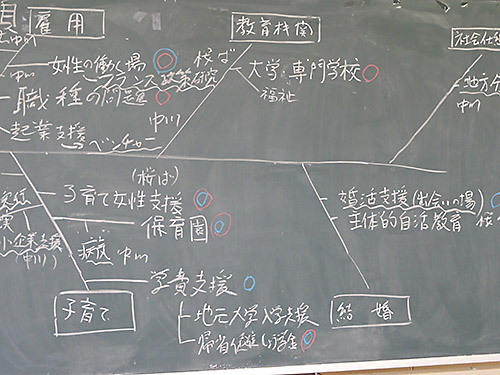 雇用
女性の働く場
桜ば
職種の問題
起業支援
ベンチャー
中川
教育機関
大学 専門学校
福祉
社会仕組
地方
中川
(桜ば)
子育て女性支援
保育園
病院 中川
小企業支援
(中川)
学費支援
地元大学入学支援
子育て
婚活支援(出会いの場)
主体的自活教育
結婚